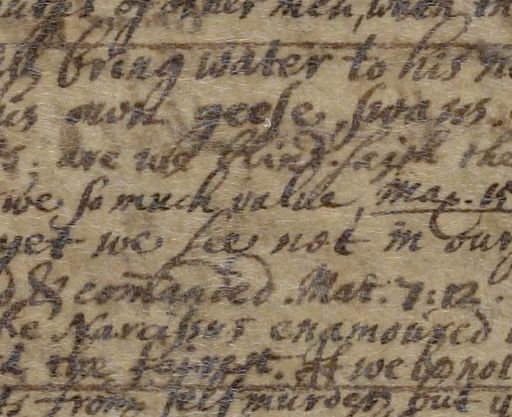 of other men, when
bring water to his
own geese, swans.
are we blind. saith the
we so much value, Mat.
yet we see not in our
& comanded. Mat. 7:12.
Narcissus enamoured
the fairest. If we do not
from self murder, but